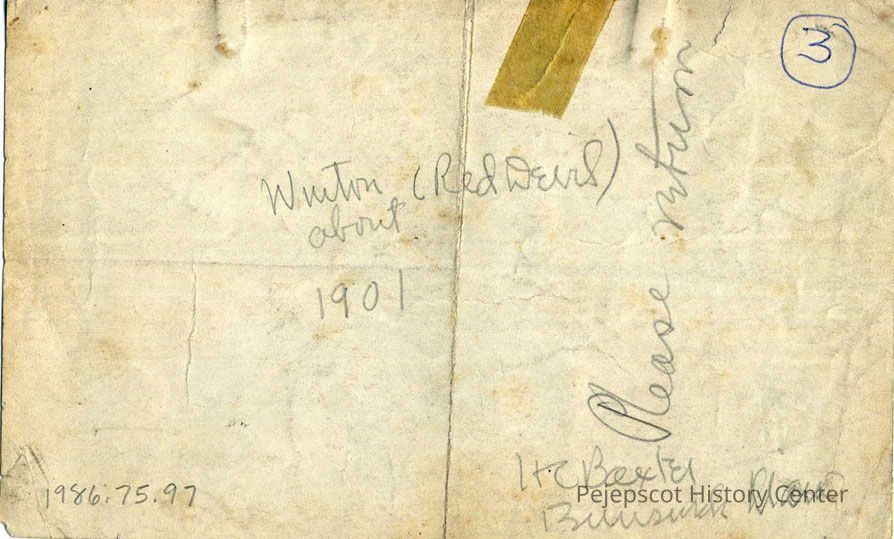 3
Winton (Red Devil)
about
1901
Please return
H C Baxter
Brunswick Maine
1986.75.97
Pejepscot History Center